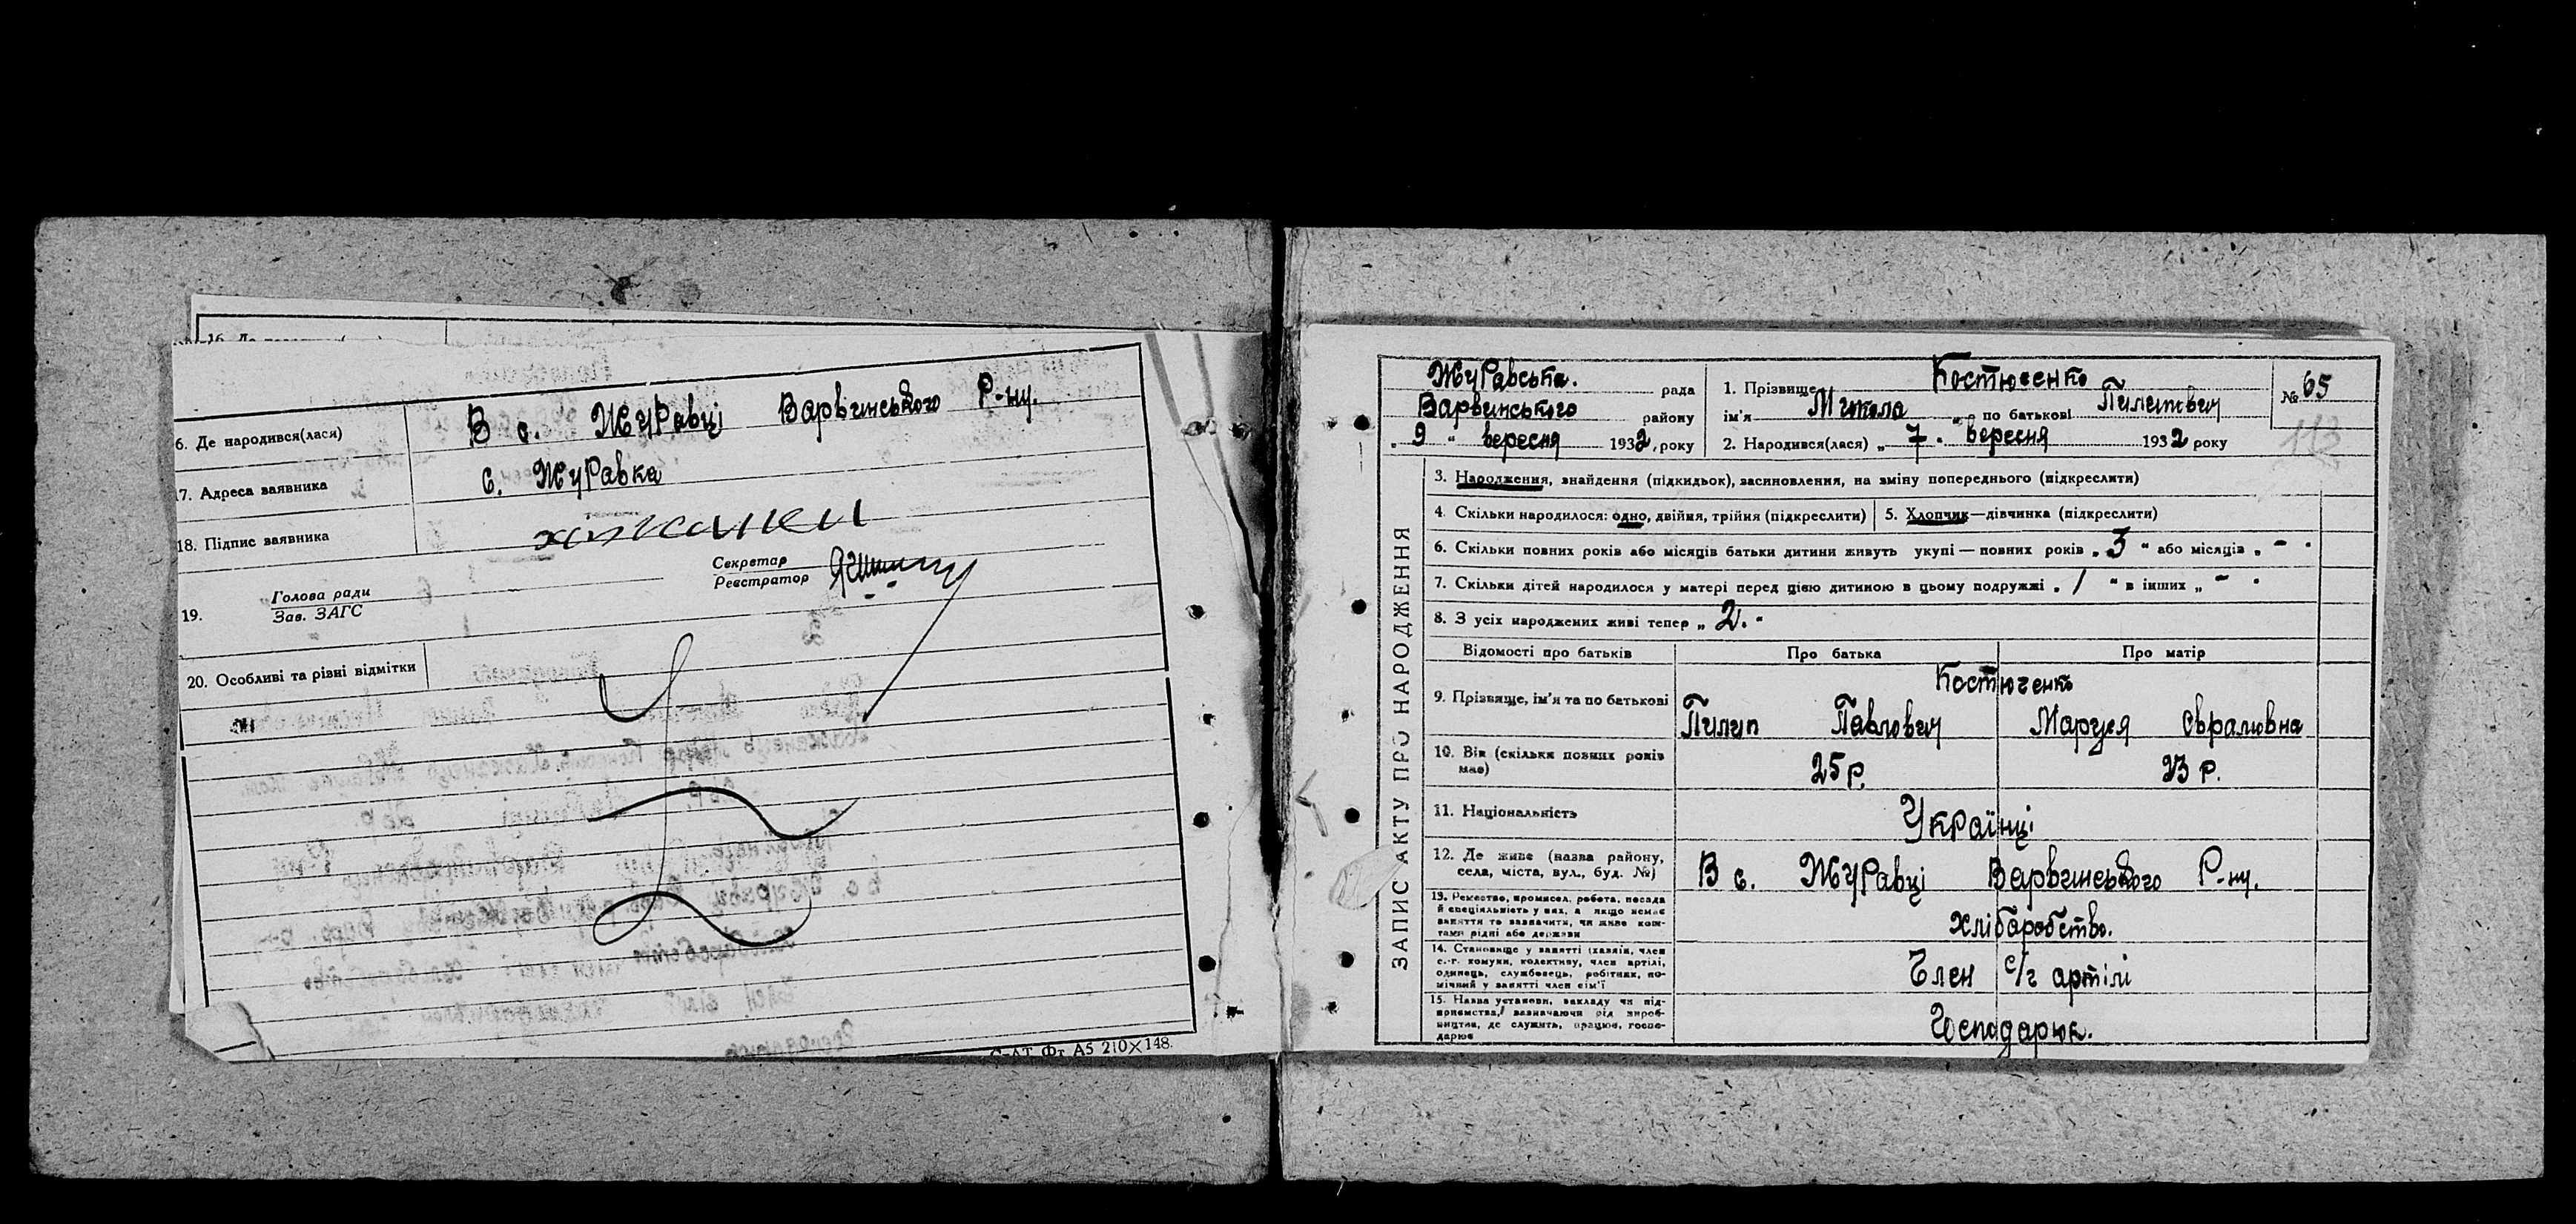 16.
6. Де народився(лася) В с. Журавці Варвинського Р-ну.
17. Адреса заявника с. Журавка
18. Підпис заявника
Секретар
Реєстратор
19. Голова ради
Зав. ЗАГС
20. Особливі та рівні відмітки
Фт А5 210×148.
ЗАПИС АКТУ ПРО НАРОДЖЕННЯ
Журавська. рада
Варвинського району
„ 9 " вересня 1932, року
1. Прізвище Костюченко
ім'я Микола по батькові Пилипович
2. Народився(лася) „ 7 " вересня 1932 року
№ 65
113
3. Народження, знайдення (підкидьок), засиновлення, на зміну попереднього (підкреслити)
4. Скільки народилося: одно, двійня, трійня (підкреслити)
5. Хлопчик—дівчинка (підкреслити)
6. Скільки повних років або місяців батьки дитини живуть укупі — повних років „ 3 " або місяців „ - "
7. Скільки дітей народилося у матері перед цією дитиною в цьому подружжі „ 1 " в інших „ - "
8. З усіх народжених живі тепер „ 2. "
Відомості про батьків Про батька Про матір
9. Прізвище, ім'я та по батькові Костюченко
Пилип Павлович Маруся
10. Вік (скільки повних років має) 25 р. 23 р.
11. Національність Українці
12. Де живе (назва району,
села, міста, вул., буд. №) В с. Журавці Варвинського Р-ну.
13. Ремество, промисел, робота, посада
й спеціяльність у них, а якщо немає
заняття то зазначити, чи живе кош-
тами рідні або держави
Хліборобство.
14. Становище у занятті (хазяїн, член
с.-г. комуни, колективу, член артілі,
одинець, службовець, робітник, по-
мічний у занятті член сім'ї
Член с/г артілі
15. Назва установи, закладу чи під-
приємства, зазначаючи рід вироб-
ництва, де служить, працює, госпо-
дарює
Господарюк.